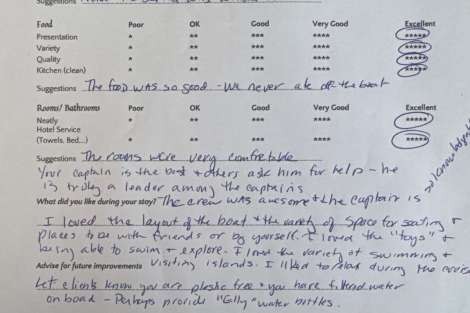 Suggestions
Food Poor OK Good Very Good Excellent
Presentation * ** *** **** *****
Variety * ** *** **** *****
Quality * ** *** **** *****
Kitchen (clean) * ** *** **** *****
Suggestions The food was so good - we never ate off the boat
Rooms/ Bathrooms Poor OK Good Very Good Excellent
Neatly * ** *** **** *****
Hotel Service
(Towels, Bed...) * ** *** **** *****
Suggestions The rooms were very comfortable
Your captain is the best + others ask him for help - he
is truly a leader among the captains
What did you like during your stay? The crew was awesome + the captain is
I loved the layout of the boat + the variety of space for seating +
places to be with friends or by yourself. I loved the "toys" +
being able to swim + explore. I loved the variety of swimming +
Advise for future improvements visiting islands. I liked to relax during the
Let clients know you are plastic free + you have filtered water
on board - Perhaps provide "Gilly" water bottles.